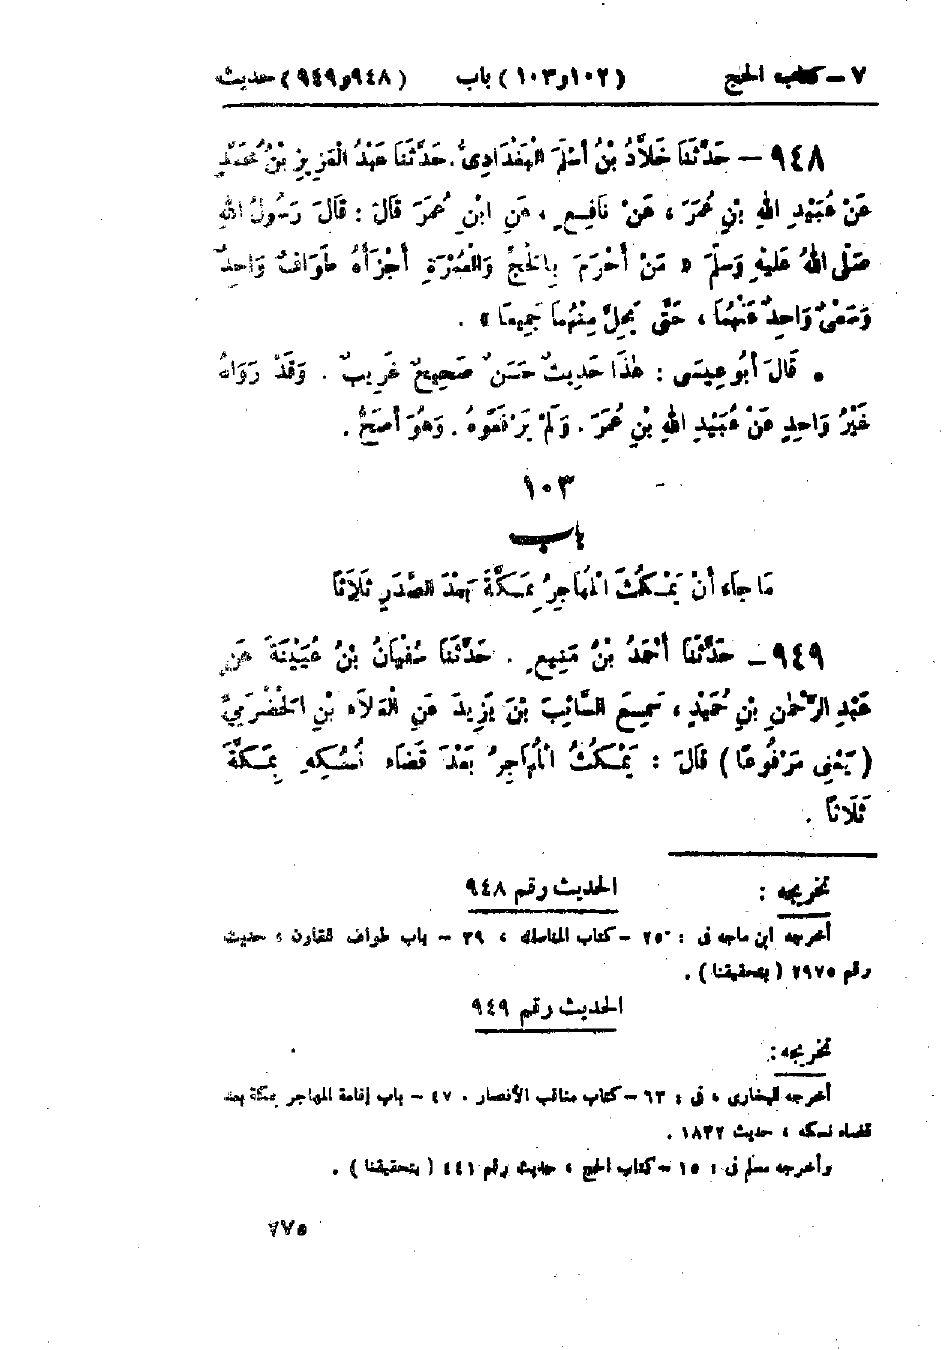 ٧ – كتاب الحج (١٠٢ و١٠٣) باب (٩٤٨ و٩٤٩) حديث
٩٤٨ – حَدَّثَنَا خَلَّادُ بْنُ أَسْلَمَ الْبَغْدَادِىُّ. حَدَّثَنَا عَبْدُ الْعَزِيزِ بْنُ مُحَمَّدٍ
عَنْ عُبَيْدِ اللهِ بْنِ عُمَرَ ، عَنْ نَافِعٍ ، عَنِ ابْنِ عُمَرَ قَالَ : قَالَ رَسُولُ اللهِ
صَلَّى اللهُ عَلَيْهِ وَسَلَّمَ « مَنْ أَحْرَمَ بِالْحَجِّ وَالْعُمْرَةِ أَجْزَأَهُ طَوَافٌ وَاحِدٌ
وَسَعْىٌ وَاحِدٌ عَنْهُمَا ، حَتَّى يَحِلَّ مِنْهُمَا جَمِيعًا » .
• قَالَ أَبُو عِيسَى : هٰذَا حَدِيثٌ حَسَنٌ صَحِيحٌ غَرِيبٌ . وَقَدْ رَوَاهُ
غَيْرُ وَاحِدٍ عَنْ عُبَيْدِ اللهِ بْنِ عُمَرَ . وَلَمْ يَرْفَعُوهُ . وَهُوَ أَصَحُّ .
١٠٣
باب
مَا جَاءَ أَنْ يَمْكُثَ الْمُهَاجِرُ بِمَكَّةَ بَعْدَ الصَّدَرِ ثَلَاثًا
٩٤٩ – حَدَّثَنَا أَحْمَدُ بْنُ مَنِيعٍ . حَدَّثَنَا سُفْيَانُ بْنُ عُيَيْنَةَ عَنْ
عَبْدِ الرَّحْمٰنِ بْنِ حُمَيْدٍ ، سَمِعَ السَّائِبَ بْنَ يَزِيدَ عَنِ الْعَلَاءِ بْنِ الْحَضْرَمِيِّ
( يَعْنِى مَرْفُوعًا ) قَالَ : يَمْكُثُ الْمُهَاجِرُ بَعْدَ قَضَاءِ نُسُكِهِ بِمَكَّةَ
ثَلَاثًا .
تخريجه : الحديث رقم ٩٤٨
أخرجه ابن ماجه فى : ٢٥ – كتاب المناسك ، ٣٩ – باب طواف القارن ، حديث
رقم ٢٩٧٥ ( بتحقيقنا ) .
الحديث رقم ٩٤٩
تخريجه :
أخرجه البخارى ، فى : ٦٣ – كتاب مناقب الأنصار . ٤٧ – باب إقامة المهاجر بمكة بعد
قضاء نسكه ، حديث ١٨٣٢ .
وأخرجه مسلم فى : ١٥ – كتاب الحج ، حديث رقم ٤٤١ ( بتحقيقنا ) .
٢٧٥